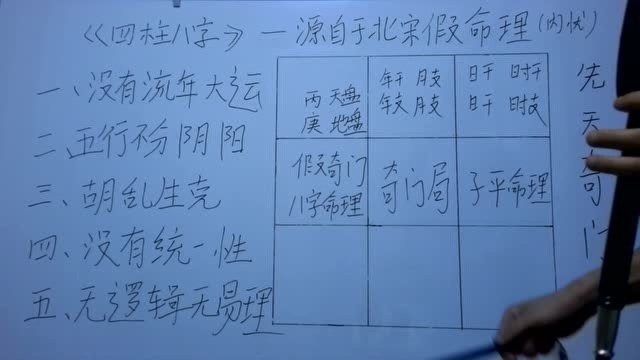 《四柱八字》— 源自于北宋假命理(内忧)
一、没有流年大运
二、五行不分阴阳
三、胡乱生克
四、没有统一性
五、无逻辑无易理
丙 天盘
庚 地盘
年干 月支
年支 月支
日干 时干
日干 时支
假奇门
八字命理
奇门局
子平命理
先天奇门